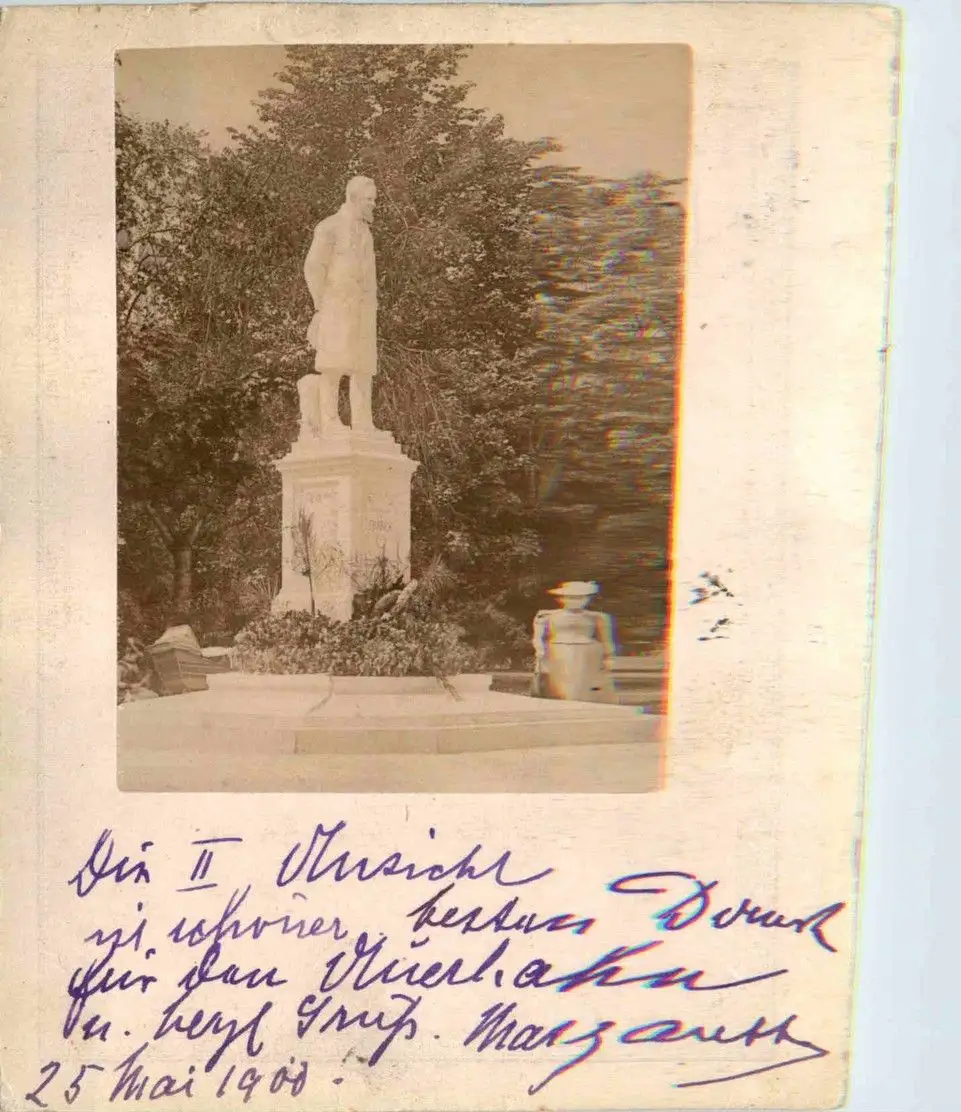 Die II Ansicht
ist schöner, besten Dank
für den Auerhahn
u. herzl Gruß. Margareth
25 Mai 1900.